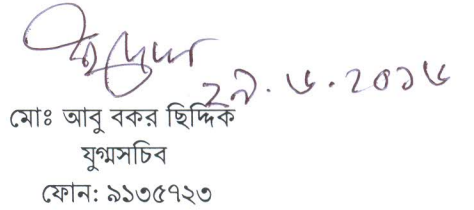 ২৯.৬.২০১৬
মোঃ আবু বকর ছিদ্দিক
যুগ্মসচিব
ফোন: ৯১৩৫৭২৩